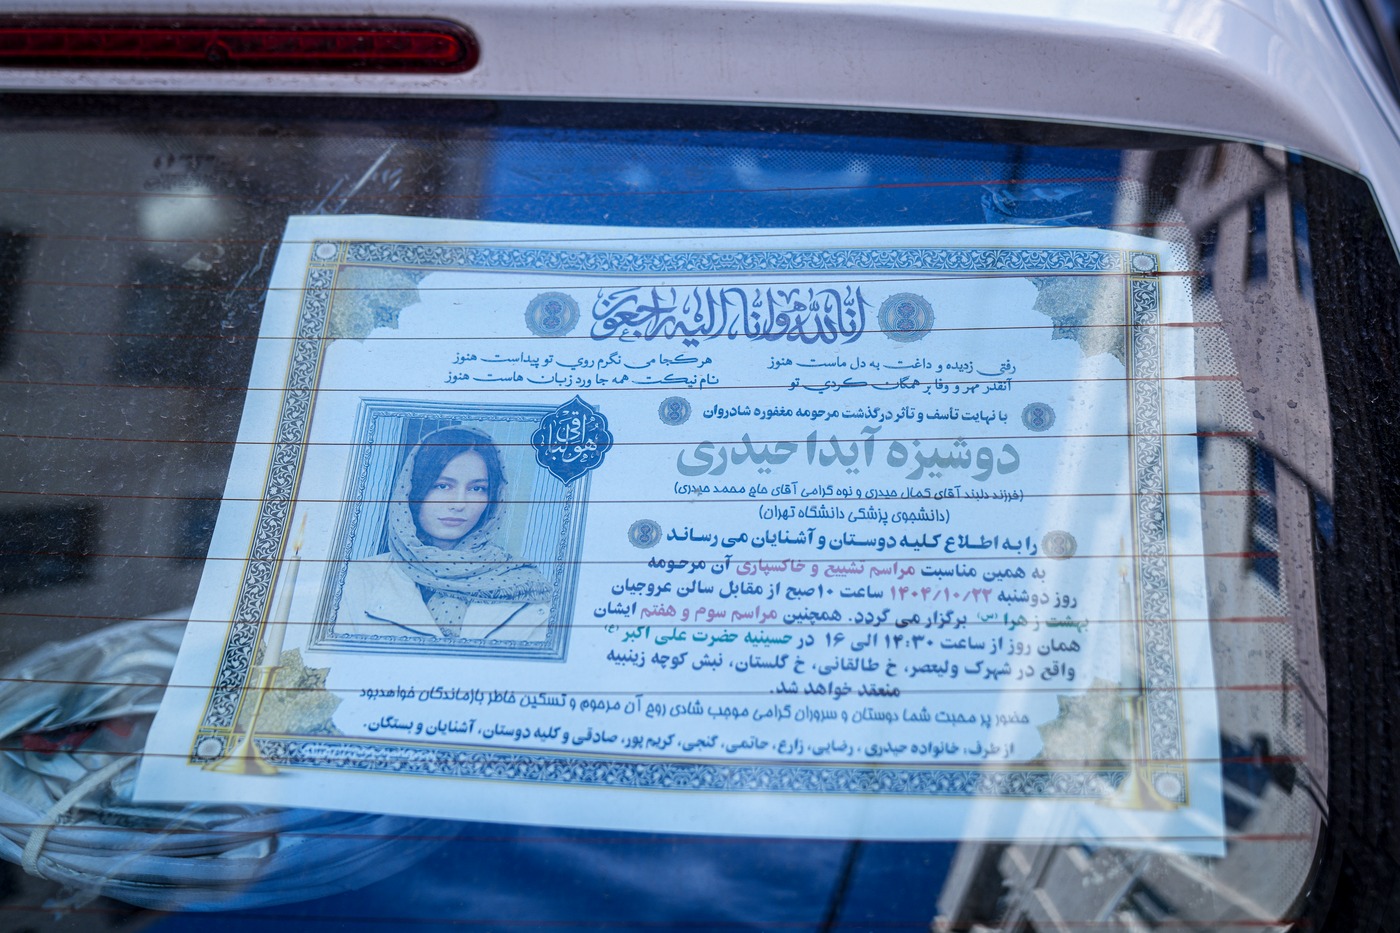 انا لله و انا الیه راجعون
رفتی زدیده و داغت به دل ماست هنوز
هر کجا می نگرم روی تو پیداست هنوز
آنقدر مهر و وفا بر همگان کردی تو
نام نیکت همه جا ورد زبان هاست هنوز
هو الباقی
با نهایت تأسف و تأثر درگذشت مرحومه مغفوره شادروان
دوشیزه آیدا حیدری
(فرزند دلبند آقای کمال حیدری و نوه گرامی آقای حاج محمد حیدری)
(دانشجوی پزشکی دانشگاه تهران)
را به اطلاع کلیه دوستان و آشنایان می رساند
به همین مناسبت مراسم تشییع و خاکسپاری آن مرحومه
روز دوشنبه ۱۴۰۴/۱۰/۲۲ ساعت ۱۰ صبح از مقابل سالن عروجیان
بهشت زهرا (س) برگزار می گردد. همچنین مراسم سوم و هفتم ایشان
همان روز از ساعت ۱۴:۳۰ الی ۱۶ در حسینیه حضرت علی اکبر (ع)
واقع در شهرک ولیعصر، خ طالقانی، خ گلستان، نبش کوچه زینبیه
منعقد خواهد شد.
حضور پر محبت شما دوستان و سروران گرامی موجب شادی روح آن مرحوم و تسکین خاطر بازماندگان خواهد بود
از طرف: خانواده حیدری ، رضایی، زارع، حاتمی، گنجی، کریم پور، صادقی و کلیه دوستان، آشنایان و بستگان.